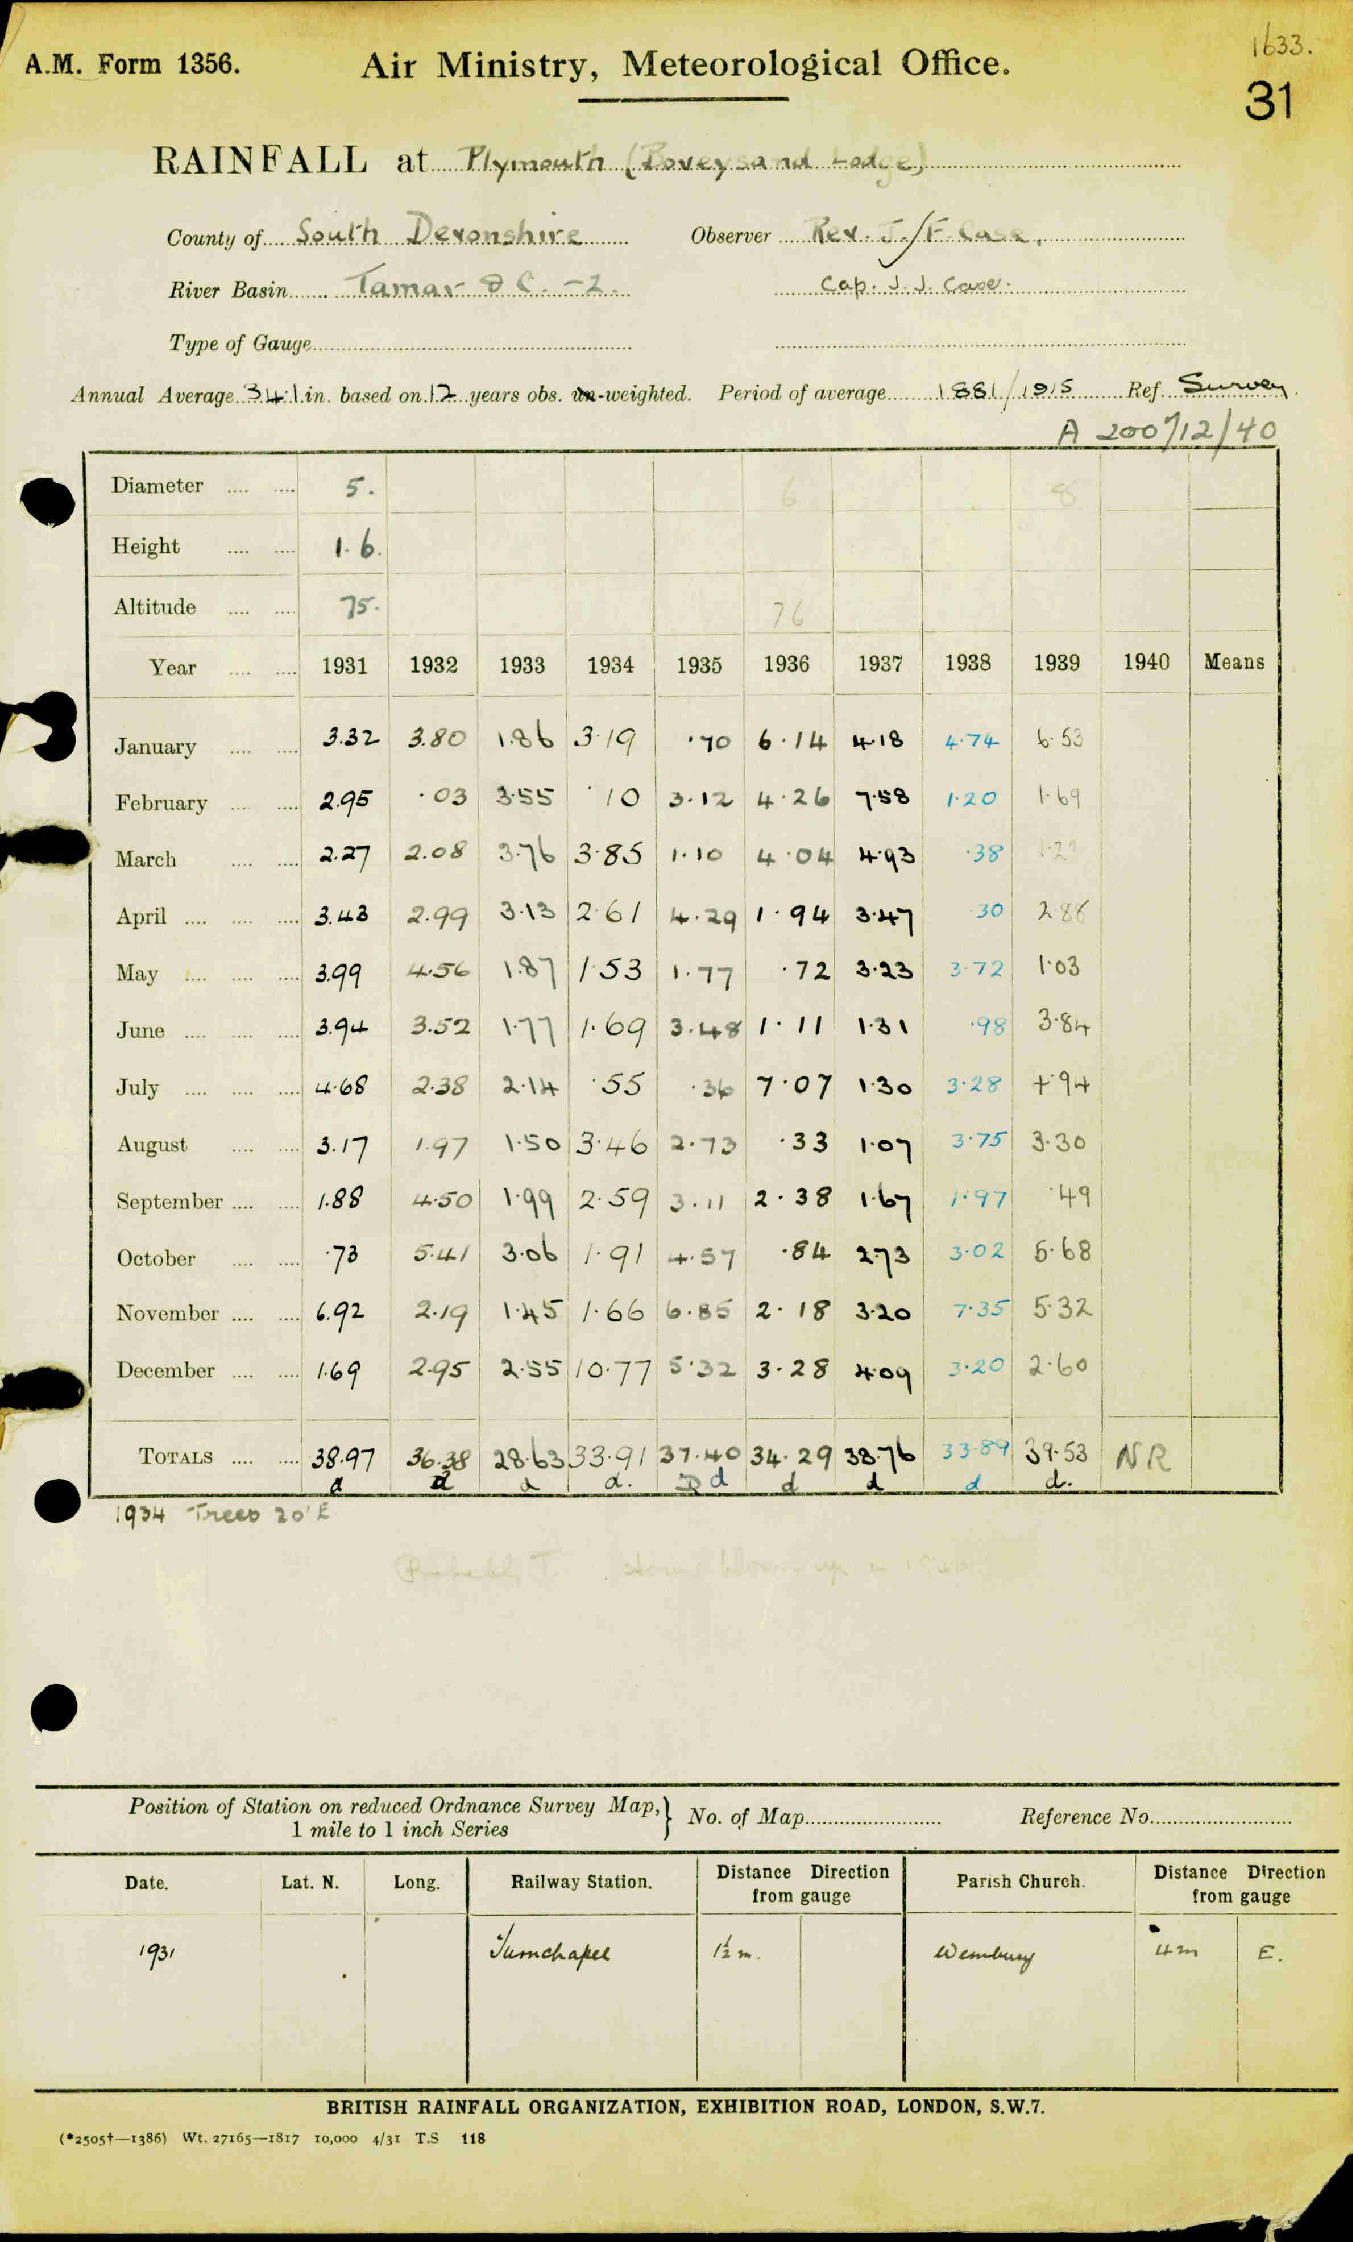 A.M. Form 1356.
Air Ministry, Meteorological Office.
1633.
31
RAINFALL at Plymouth (Boveysand Lodge)
County of South Devonshire Observer Rev. J./F. Case.
River Basin Tamar & C. -2. Cap. J. J. Case.
Type of Gauge
Annual Average 34.1 in. based on 17 years obs. un-weighted. Period of average 1881/1915 Ref. Survey
A 200712/40
Diameter 5. 6 8
Height 1.6.
Altitude 75. 76
Year 1931 1932 1933 1934 1935 1936 1937 1938 1939 1940 Means
January 3.32 3.80 1.86 3.19 .70 6.14 4.18 4.74 6.53
February 2.95 .03 3.55 .10 3.12 4.26 7.58 1.20 1.69
March 2.27 2.08 3.76 3.85 1.10 4.04 4.93 .38
April 3.43 2.99 3.13 2.61 4.29 1.94 3.47 .30 2.86
May 3.99 4.56 1.87 1.53 1.77 .72 3.23 3.72 1.03
June 3.94 3.52 1.77 1.69 3.48 1.11 1.31 .98 3.84
July 4.68 2.38 2.14 .55 .36 7.07 1.30 3.28 4.94
August 3.17 1.97 1.50 3.46 2.73 .33 1.07 3.75 3.30
September 1.88 4.50 1.99 2.59 3.11 2.38 1.67 1.97 .49
October .73 5.41 3.06 1.91 4.57 .84 2.73 3.02 5.68
November 6.92 2.19 1.45 1.66 6.85 2.18 3.20 7.35 5.32
December 1.69 2.95 2.55 10.77 5.32 3.28 4.09 3.20 2.60
TOTALS 38.97 36.38 28.63 33.91 37.40 34.29 38.76 33.89 39.53 NR
d d d d. d d d d d.
1934 Trees 20' E
Probably T.
Position of Station on reduced Ordnance Survey Map, } No. of Map Reference No.
1 mile to 1 inch Series
Date. Lat. N. Long. Railway Station. Distance Direction from gauge Parish Church. Distance Direction from gauge
1931 Turnchapel 1½ m. Wembury 4 m E.
BRITISH RAINFALL ORGANIZATION, EXHIBITION ROAD, LONDON, S.W.7.
(*2505†—1386) Wt. 27165—1817 10,000 4/31 T.S 118